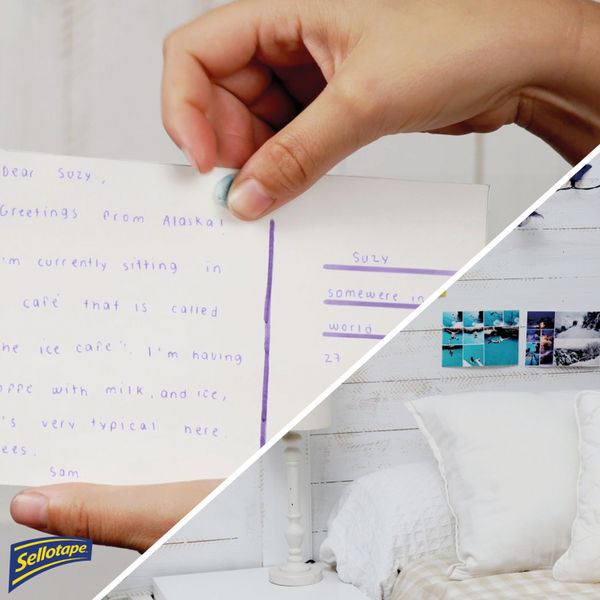 Dear Suzy,
Greetings from Alaska!
I'm currently sitting in
café that is called
he ice café". I'm having
offe with milk, and ice,
's very typical here.
ees.
Sam
Suzy
somewere in
world
27
Sellotape